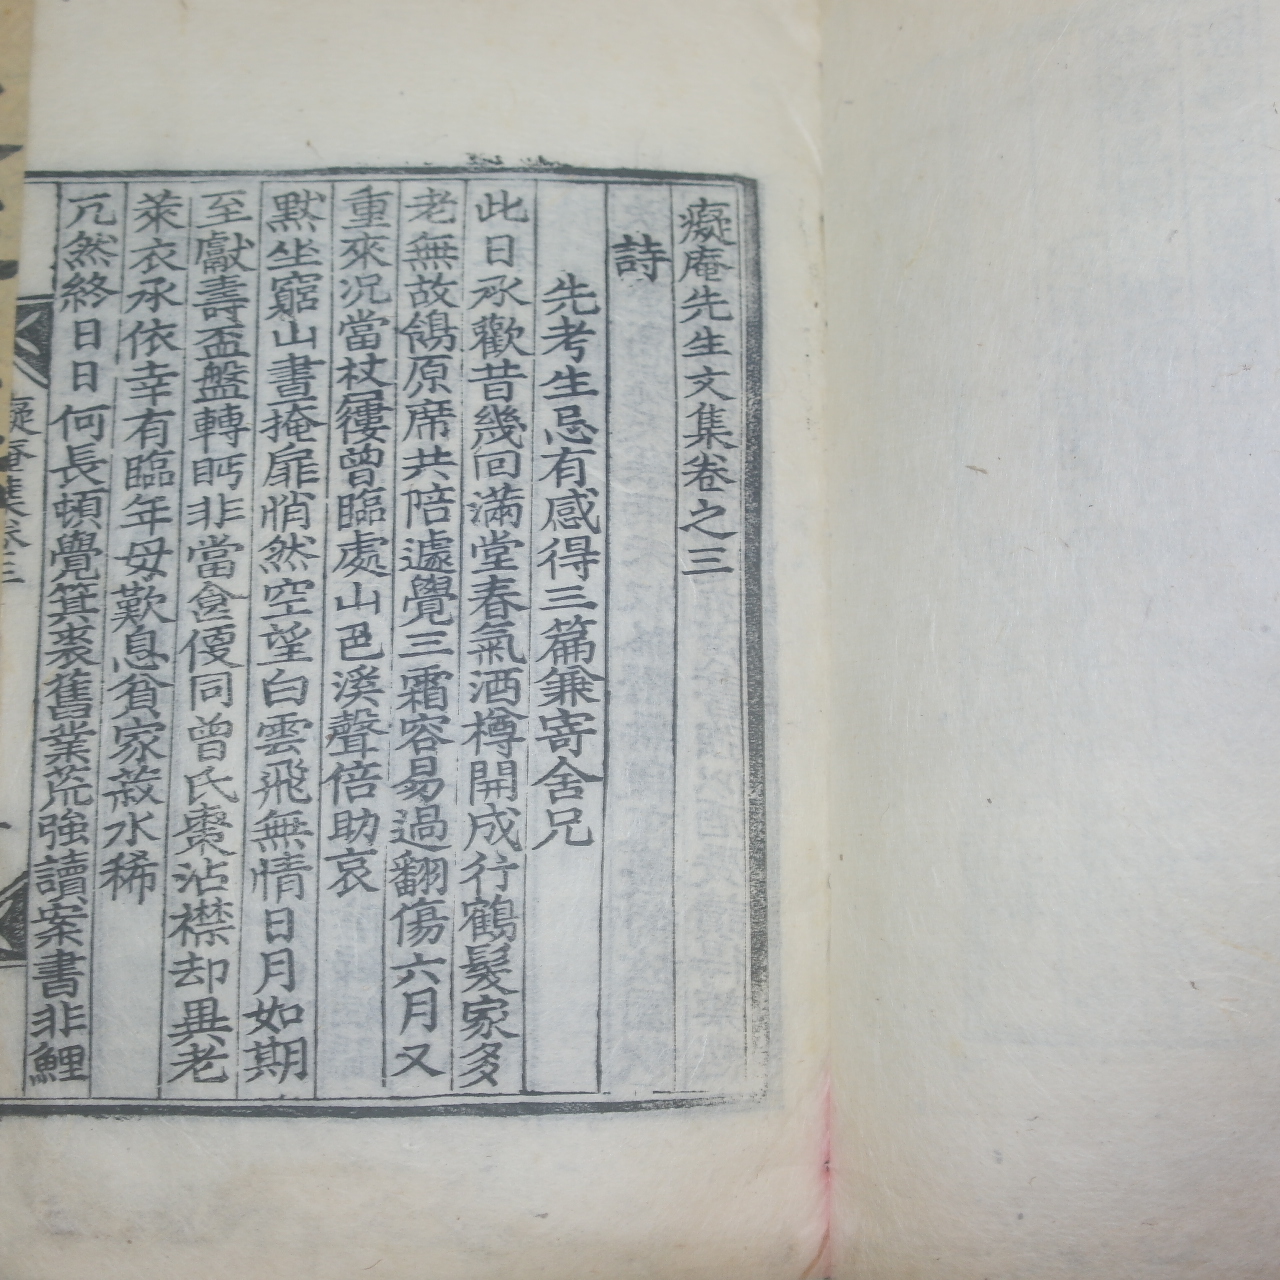 癡庵先生文集卷之三
詩
先考生忌有感得三篇兼寄舍兄
此日承歡昔幾回滿堂春氣酒樽開成行鶴髮家多
老無故鴒原席共陪遽覺三霜容易過翻傷六月又
重來況當杖屨曾臨處山色溪聲倍助哀
默坐窮山晝掩扉悄然空望白雲飛無情日月如期
至獻壽盃盤轉眄非當食僾同曾氏棗沾襟却異老
萊衣承依幸有臨年母歎息貧家菽水稀
兀然終日日何長頓覺箕裘舊業荒強讀案書非鯉
癡庵集卷三